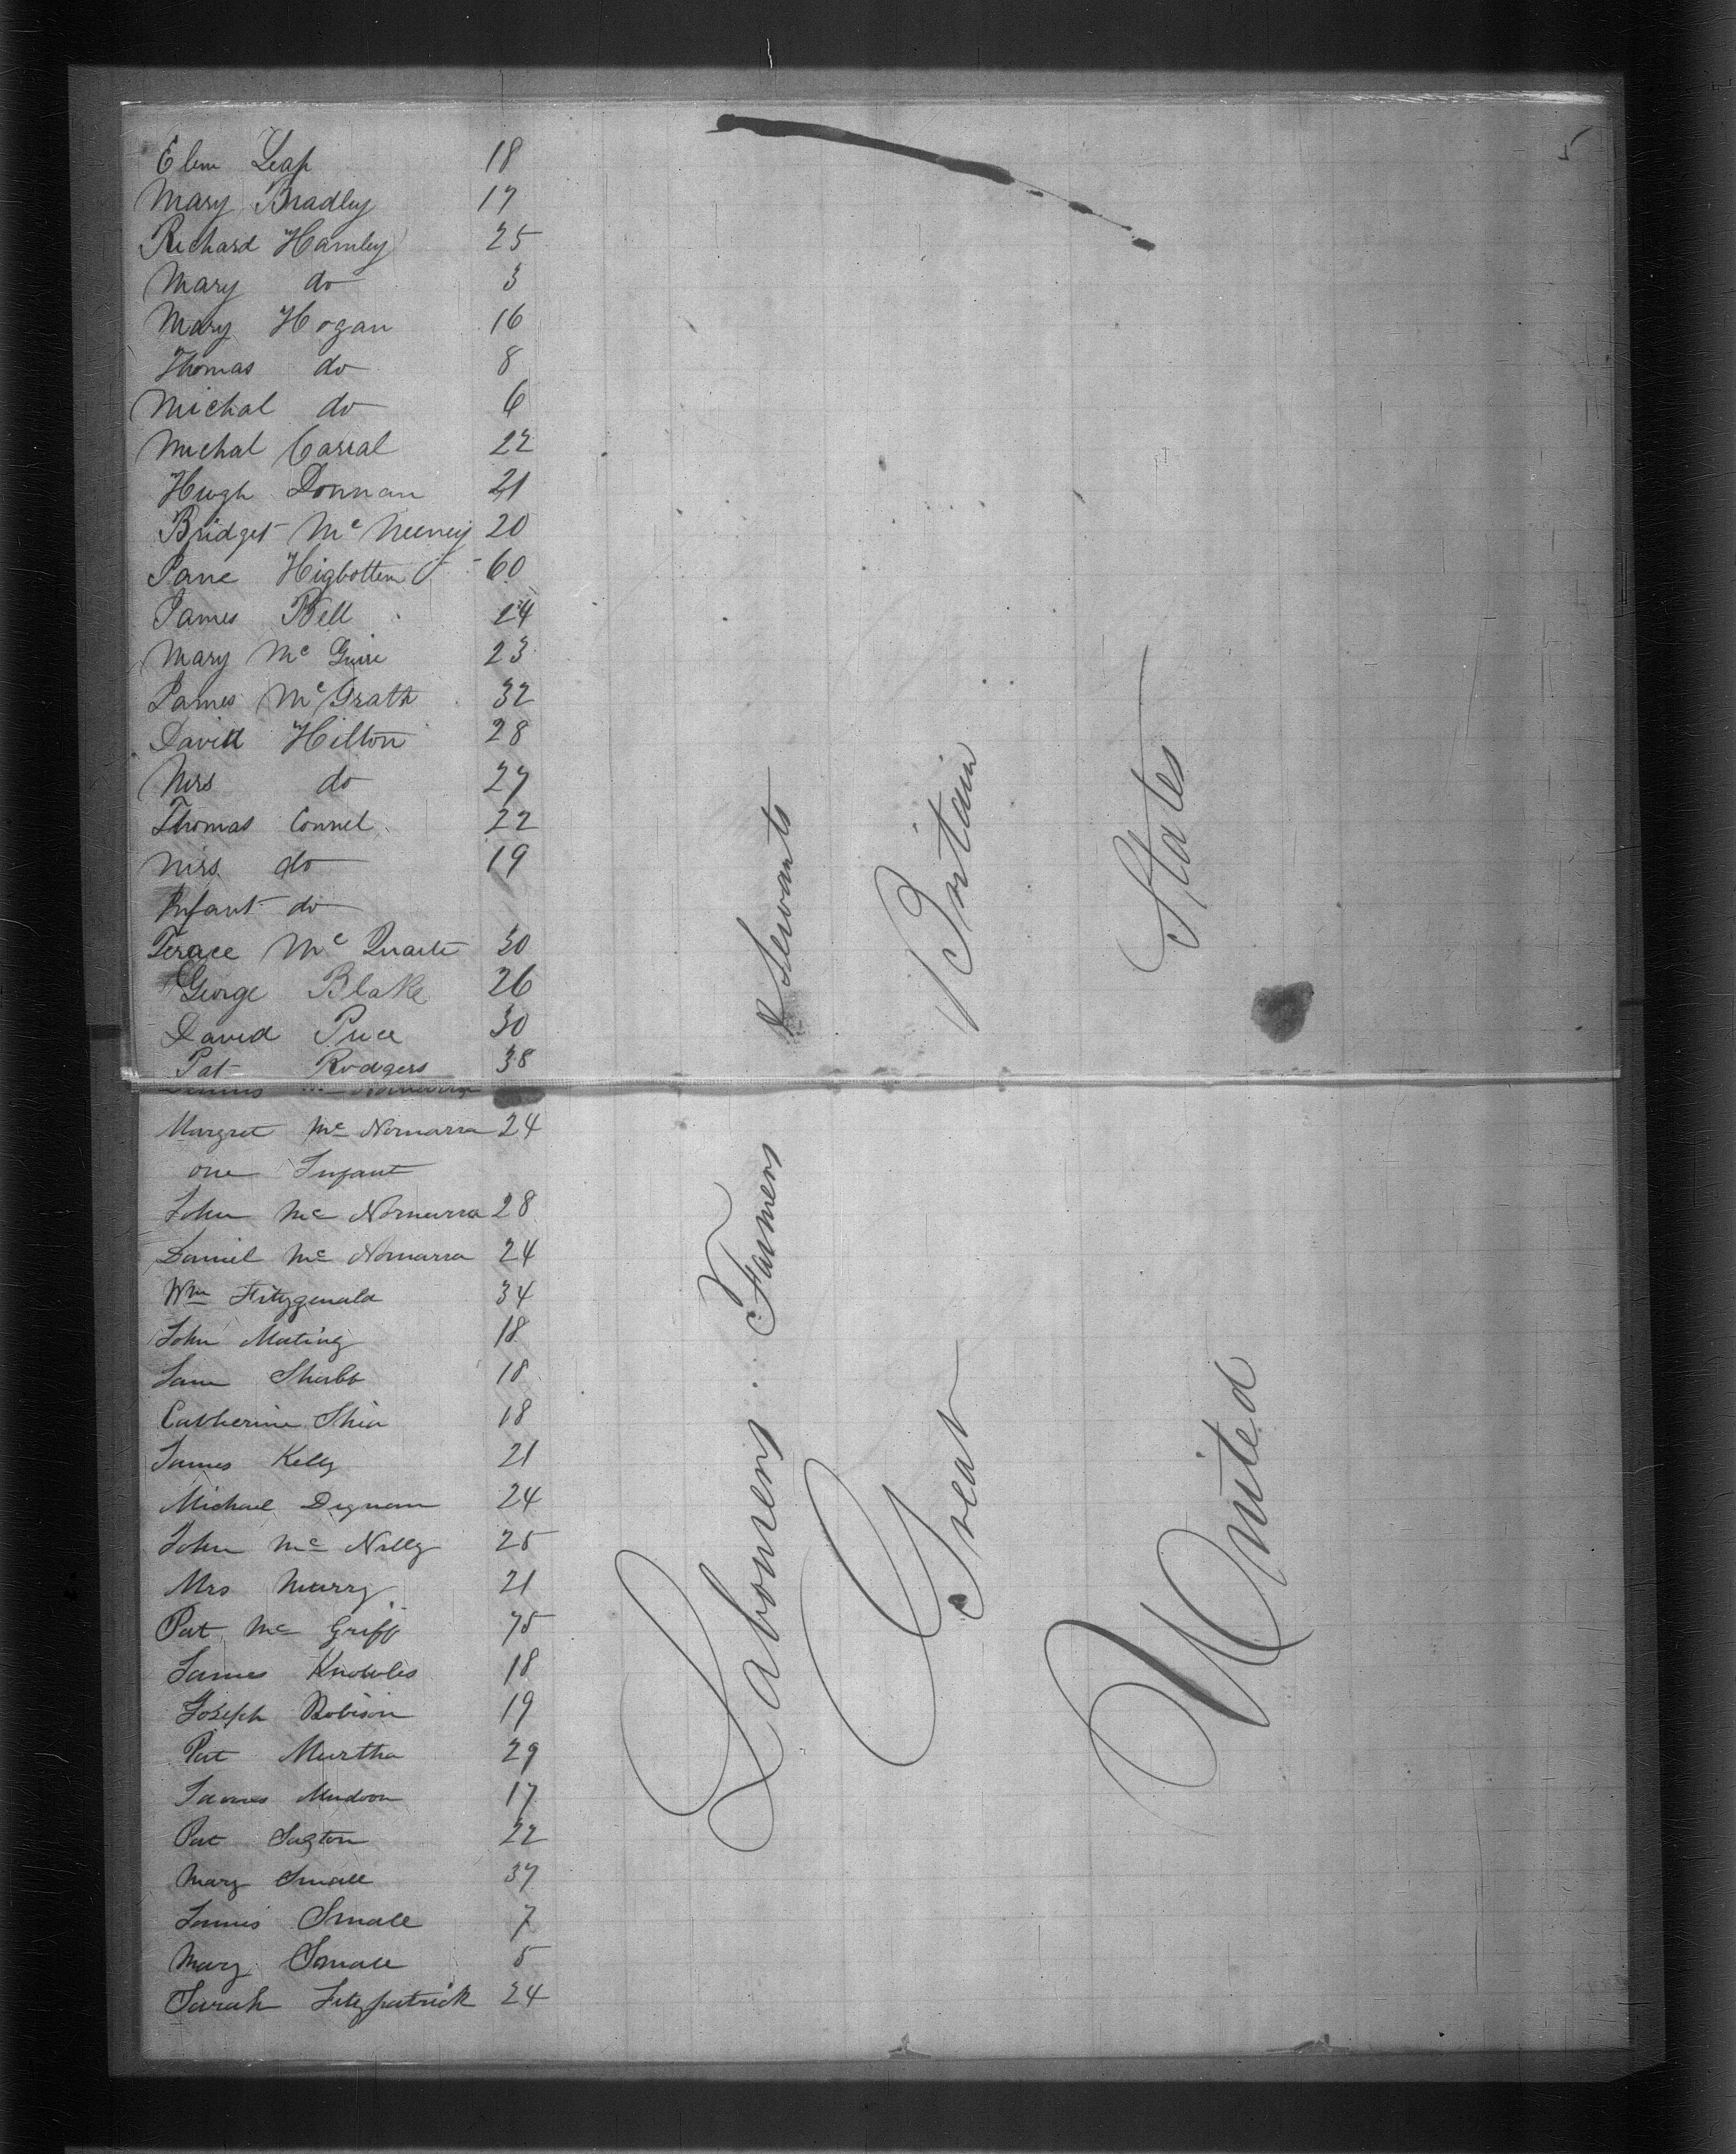 Elen Leap 18
Mary Bradley 17
Richard Hamley 25
Mary do 3
Mary Hogan 16
Thomas do 8
Michal do 6
Michal Carial 22
Hugh Donnan 21
Bridget Mc Neeney 20
Jane Higbotten 60
James Bell 24
Mary Mc Guire 23
James Mc Grath 32
David Hilton 28
Mrs do 27
Thomas Connel 22
Mrs do 19
Infant do
Terace Mc Quaite 30
George Blake 26
David Price 30
Pat Rodgers 38
Margret Mc Nomarra 24
one Infant
John Mc Nomarra 28
Daniel Mc Nomarra 24
Wm Fitzgerald 34
John Muting 18
Jane Shubb 18
Catherine Shia 18
James Kelly 21
Michael Dignam 24
John Mc Nilly 25
Mrs Murry 21
Pat Mc Griff 75
James Knowles 18
Joseph Robison 19
Pat Murtha 29
James Muldoon 17
Pat Sugton 22
Mary Small 37
James Small 7
Mary Small 5
Sarah Fitzpatrick 24
Labourers Farmers & Servants
Great Britain
United States